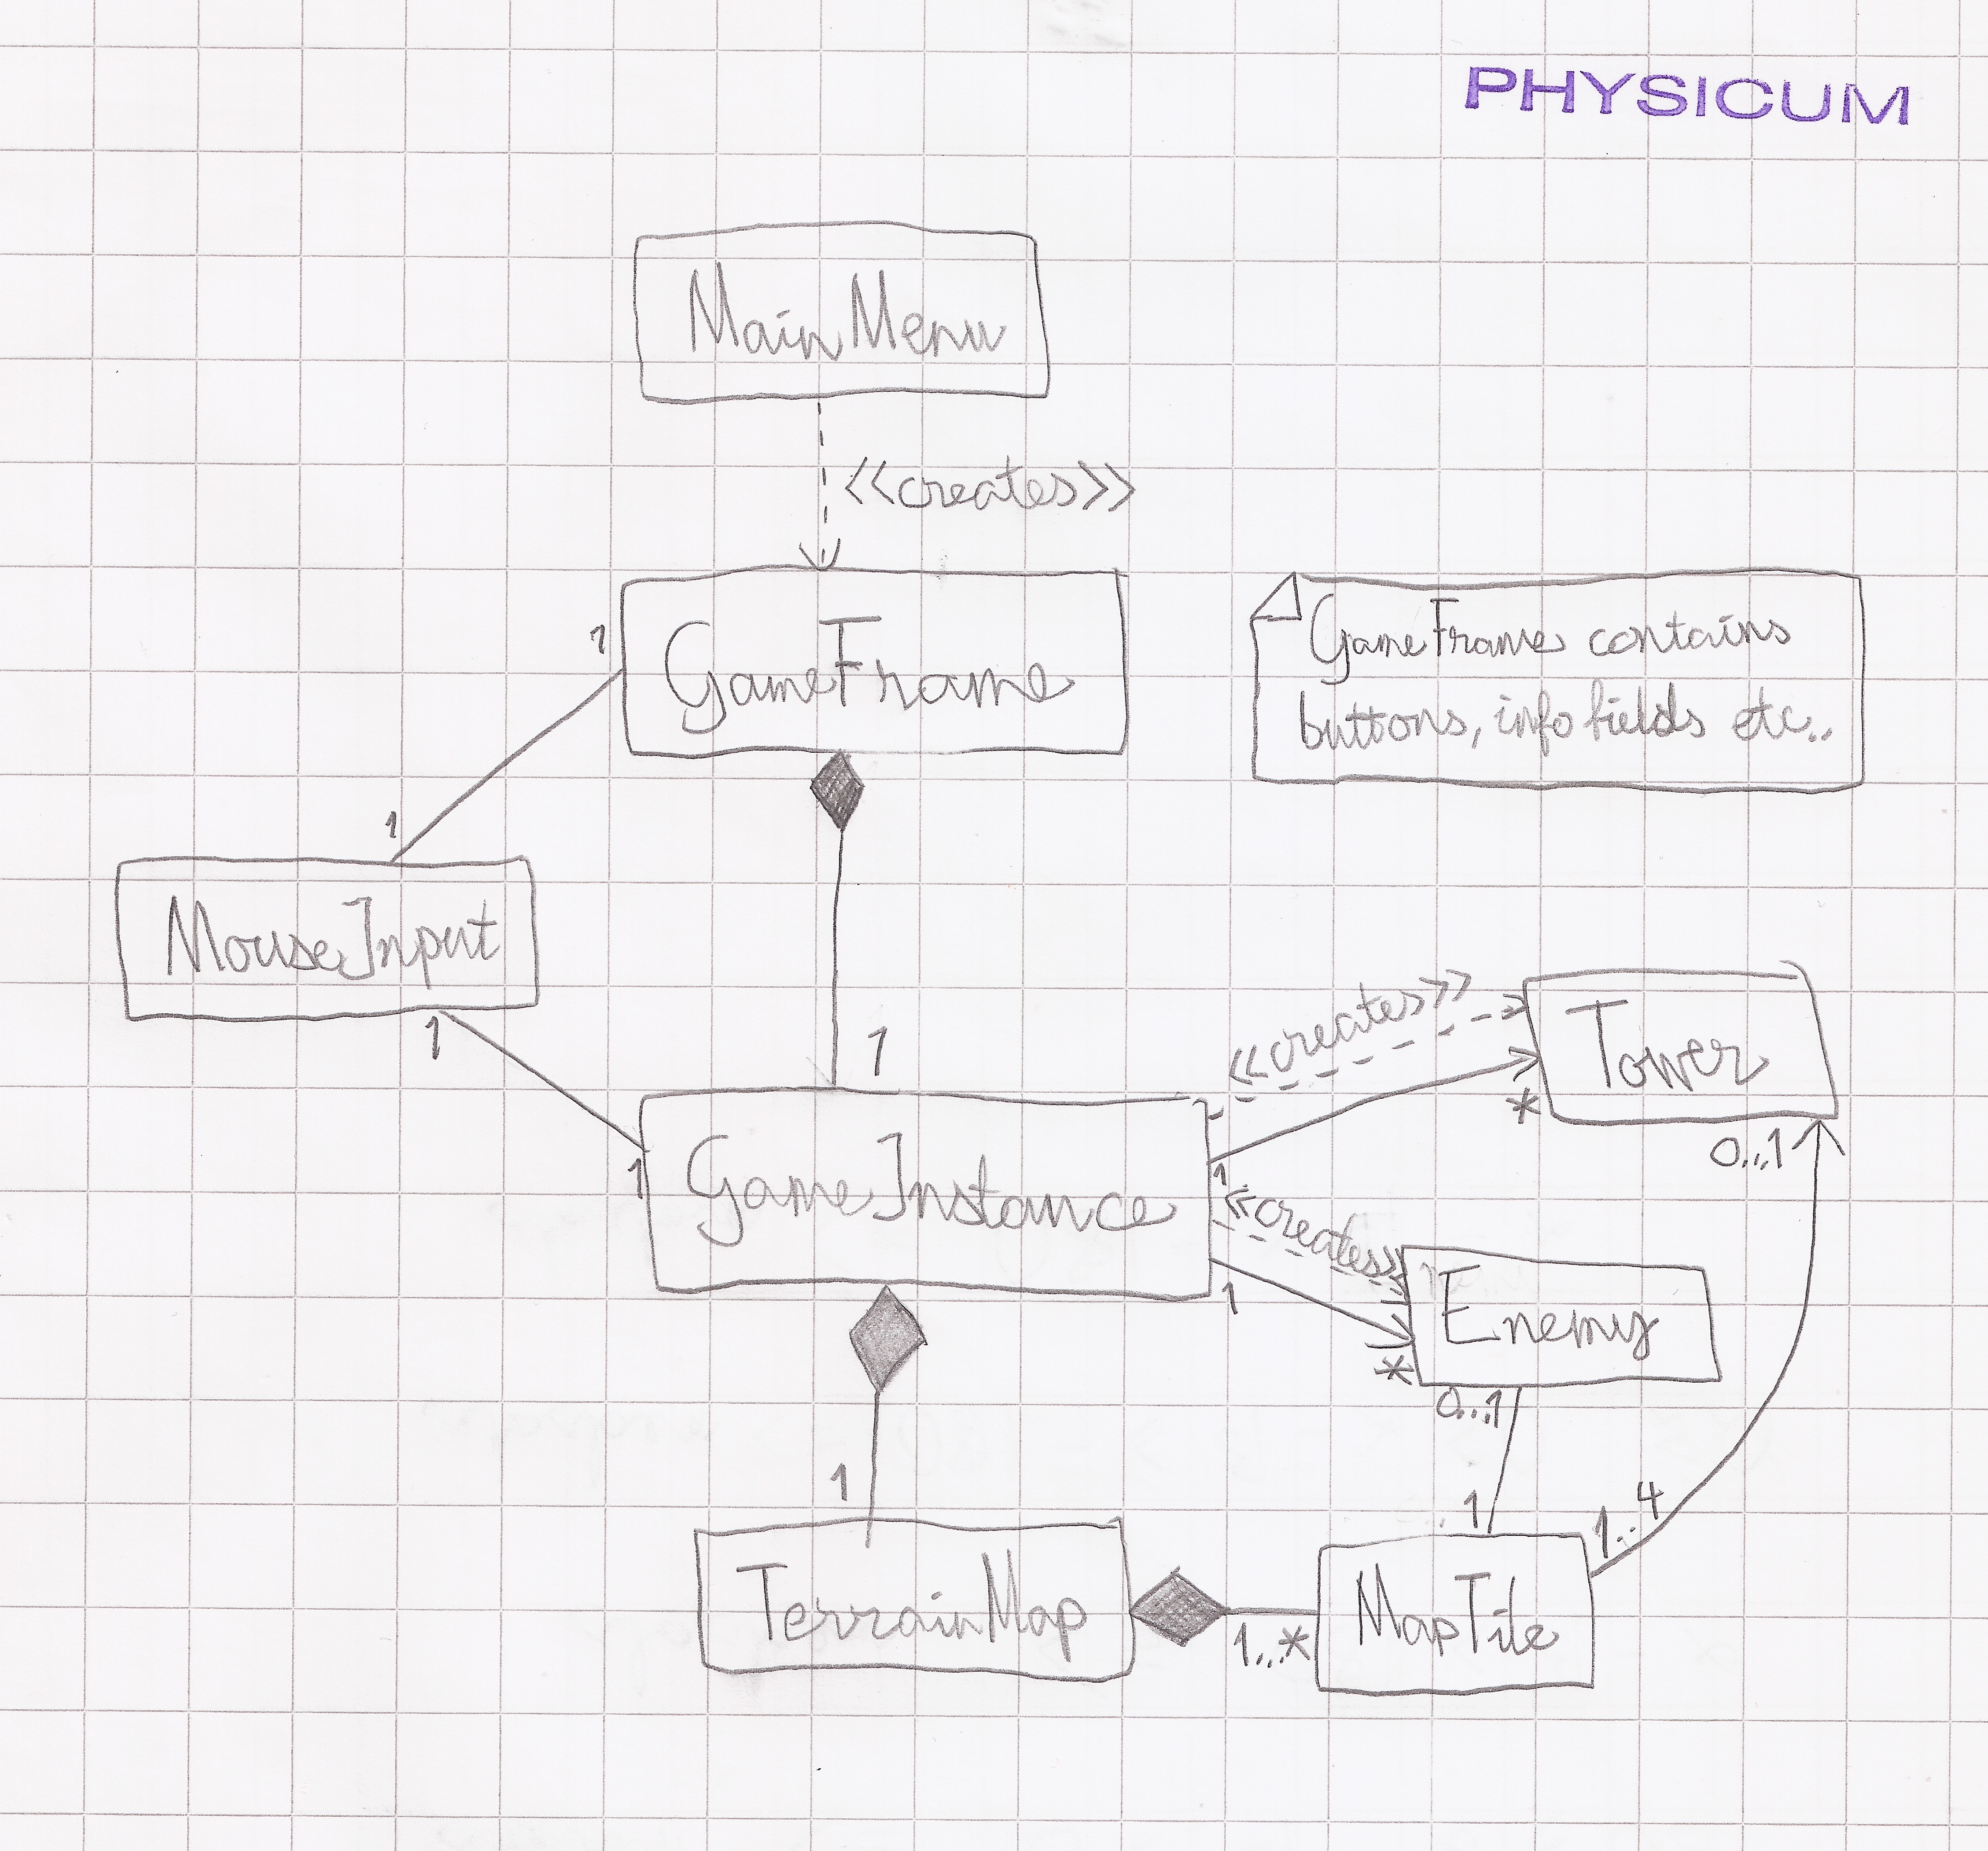 PHYSICUM
MainMenu
<<creates>>
GameFrame
1
GameFrame contains
buttons, info fields etc..
1
MouseInput
1
1
<<creates>>
Tower
*
0...1
1
GameInstance
1
<<creates>>
1
Enemy
*
0...1
1
1
1..4
TerrainMap
1...*
MapTile